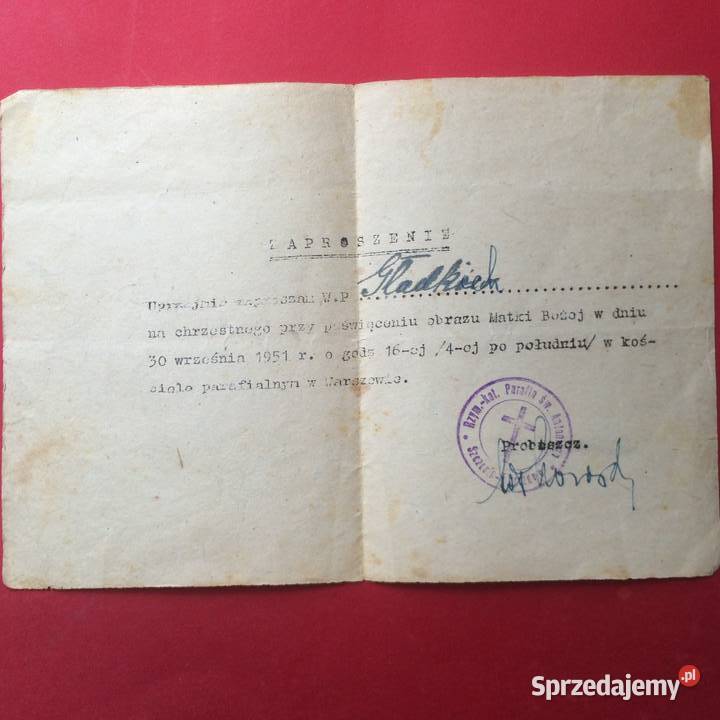 ZAPROSZENIE
Uprzejmie zapraszam W.P. Gładkich
na chrzestnego przy poświęceniu obrazu Matki Bożej w dniu
30 września 1951 r. o godz 16-ej /4-ej po południu/ w koś-
ciele parafialnym w Warszewie.
Rzym.-kat. Parafia św. Antoniego
Proboszcz.
Sprzedajemy.pl